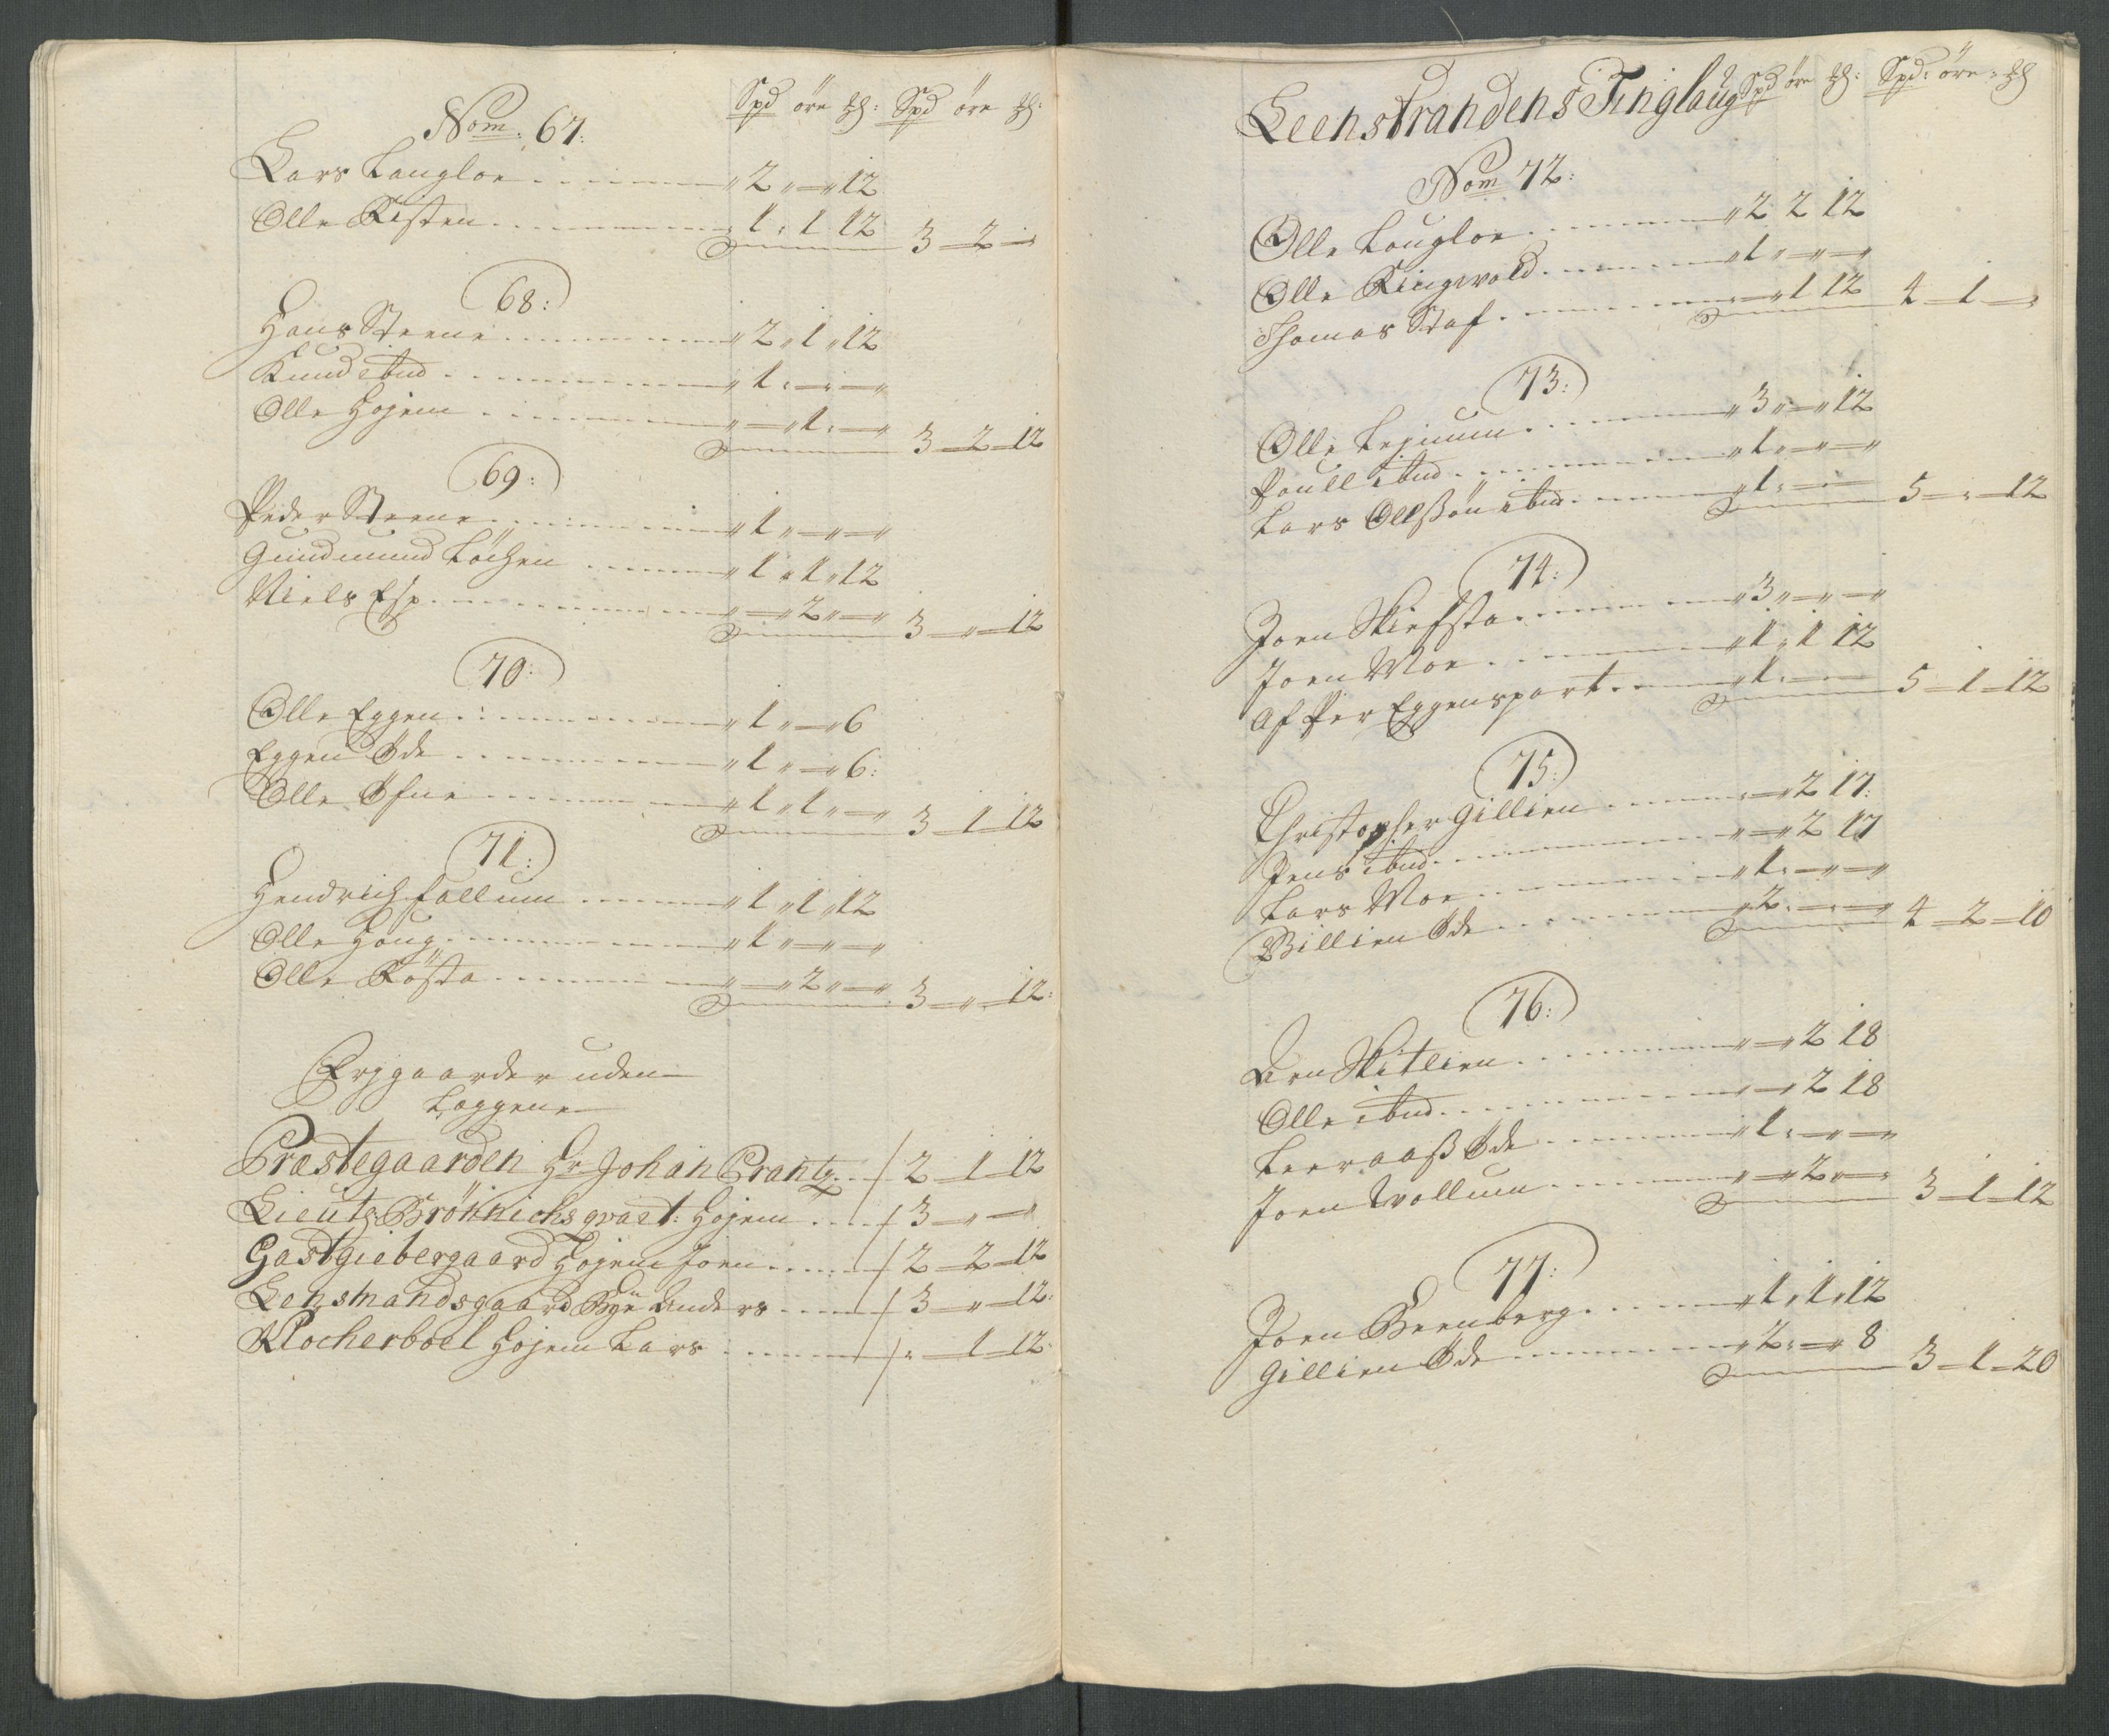 Spd öre ₰: Spd öre ₰:
Nom. 67:
Lars Laugloe ........ " 2 " — " 12
Olle Risten ........ 1 " 1 12
3 — 2 — "
68:
Hans Steene ........ " 2 " 1 " 12
Knud ibid ........ " 1 " — " — "
Olle Hojem ........ " — " 1 " — "
3 — 2 — 12
69:
Peder Steene ........ " 1 " — " — "
Gundmund Löchen ........ " 1 " 1 " 12
Niels Esp ........ " — " 2 " — "
3 — " — 12
70:
Olle Eggen ........ " 1 " — " 6
Eggen Öde ........ " 1 " — " 6:
Olle Öfne ........ " 1 " 1 " — "
3 — 1 — 12
71:
Hendrich Follum ........ " 1 " 1 " 12
Olle Houg ........ " 1 " — " — "
Olle Rösta ........ " — " 2 " — "
3 — " — 12:
Erggaarder uden
Læggene
Præstegaarden Hr Johan Crantz .. / 2 — 1 — 12
Lieut: Brönnichs qvart: Hojem .... / 3 — " — "
Gastgiebergaard Hojem Joen ...... / 2 — 2 — 12
Lensmandsgaard Bye Anders ..... / 3 — " — 12:
Klocherboel Hojem Lars ....... / " — 1 — 12:
Leenstrandens Tinglaug Spd öre ₰: Spd: öre " ₰
Nom 72:
Olle Laugloe ........ " 2 2 12
Olle Ringvold ........ " 1 " — " — "
Thomas Staf ........ " — " 1 12
4 — 1 — "
73:
Olle Leinum ........ " 3 " — " 12
Poull ibid ........ " 1 " — " — "
Lars Ollßön ibid ........ " 1 " —
5 — " — 12
74:
Joen Skiefsta ........ " 3 " — " — "
Joen Moe ........ " 1 " 1 12
Af Per Eggens part ........ " 1 " —
5 — 1 — 12
75:
Christopher Gillien ........ " — " 2 17:
Jens ibid ........ " — " 2 17
Lars Moe ........ " 1 " — " — "
Billien Öde ........ " 2 " — " — "
4 — 2 — 10
76:
Arn Skitlien ........ " — " 2 18
Olle ibid ........ " — 2 18
Leeraaß Öde ........ " 1 " — " — "
Joen Wollum ........ " — " 2 " — "
3 — 1 — 12
77:
Joen Beenberg ........ " 1 " 1 " 12
Gillien Öde ........ " 2 " — " 8
3 — 1 — 20